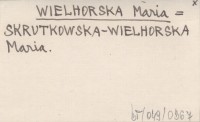 WIELHORSKA Maria =
SKRUTKOWSKA-WIELHORSKA
Maria.